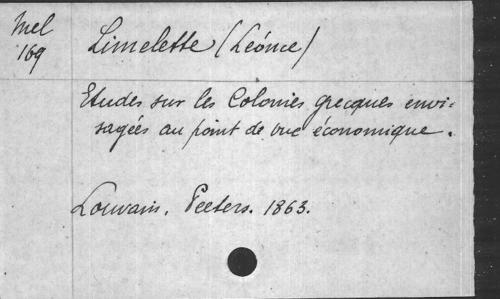 Mel
169
Limelette (Léonce)
Etudes sur les Colonies grecques envi-
sagées au point de vue économique.
Louvain, Peeters. 1863.